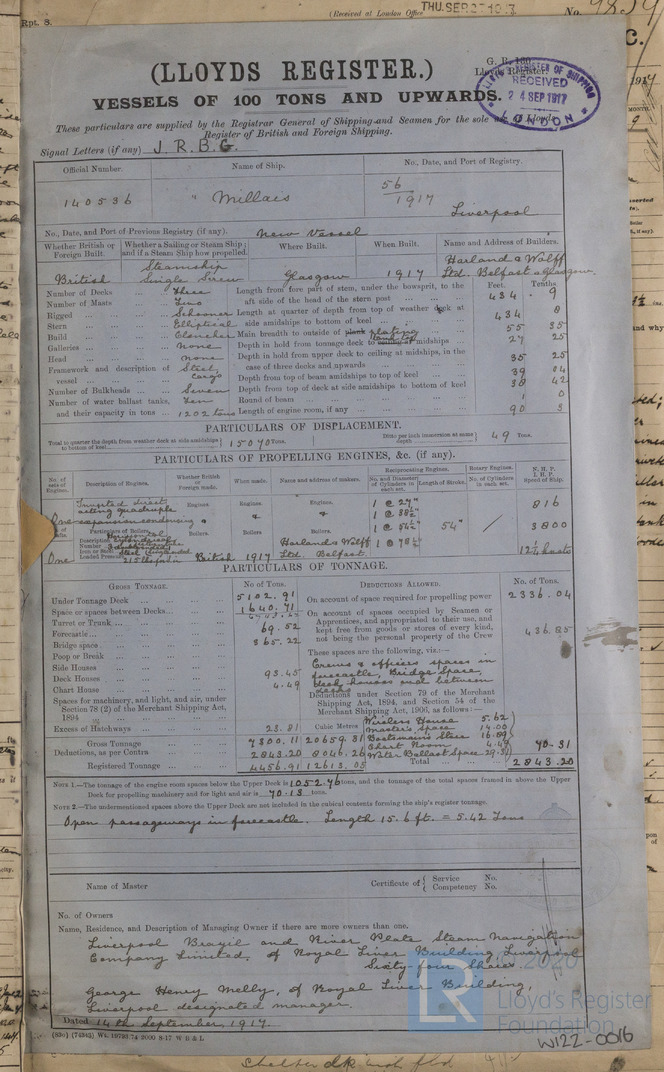 Rpt. 8.
(Received at London Office
THU. SEP 27 1917
No.
(LLOYDS REGISTER.)
G. R. 160.
Lloyd's Register.
LLOYD'S REGISTER OF SHIPPING
RECEIVED
24 SEP 1917
LONDON
VESSELS OF 100 TONS AND UPWARDS.
These particulars are supplied by the Registrar General of Shipping and Seamen for the sole use of Lloyds
Register of British and Foreign Shipping.
Signal Letters (if any) J. R. B. G.
Official Number. Name of Ship. No., Date, and Port of Registry.
140536 "Millais 56/1917 Liverpool
No., Date, and Port of Previous Registry (if any). New Vessel
Whether British or Foreign Built. Whether a Sailing or Steam Ship; and if a Steam Ship how propelled. Where Built. When Built. Name and Address of Builders.
British Steamship Single Screw Glasgow 1917 Harland & Wolff Ltd. Belfast & Glasgow.
Feet. Tenths
Number of Decks Three Length from fore part of stem, under the bowsprit, to the aft side of the head of the stern post 434 . 9
Number of Masts Two
Rigged Schooner Length at quarter of depth from top of weather deck at side amidships to bottom of keel 434 8
Stern Elliptical
Build Clencher Main breadth to outside of plank plating 55 35
Galleries none Depth in hold from tonnage deck to amidships 27 25
Head none Depth in hold from upper deck to ceiling at midships, in the case of three decks and upwards 35 25
Framework and description of vessel Steel, Cargo Depth from top of beam amidships to top of keel 39 04
Number of Bulkheads Seven Depth from top of deck at side amidships to bottom of keel 38 42
Number of water ballast tanks, Ten Round of beam 1 0
and their capacity in tons 1202 tons Length of engine room, if any 90 3
PARTICULARS OF DISPLACEMENT.
Total to quarter the depth from weather deck at side amidships to bottom of keel 15070 Tons. Ditto per inch immersion at same depth 49 Tons.
PARTICULARS OF PROPELLING ENGINES, &c. (if any).
No. of sets of Engines. Description of Engines. Whether British or Foreign made. When made. Name and address of makers. Reciprocating Engines. Rotary Engines. N.H.P. I.H.P. Speed of Ship.
No. and Diameter of Cylinders in each set. Length of Stroke. No. of Cylinders in each set.
One Inverted direct acting quadruple expansion condensing Engines. Engines. Engines. 1 @ 27" 816
1 @ 38½"
Particulars of Boilers. Boilers. Boilers Boilers. 1 @ 54½" 54" 3800
One British 1917 Harland & Wolff Ltd. Belfast. 1 @ 78½" 12¼ knots
PARTICULARS OF TONNAGE.
GROSS TONNAGE. No of Tons. DEDUCTIONS ALLOWED. No. of Tons.
Under Tonnage Deck 5102.91 On account of space required for propelling power 2336.04
Space or spaces between Decks 1640.71 On account of spaces occupied by Seamen or Apprentices, and appropriated to their use, and kept free from goods or stores of every kind, not being the personal property of the Crew 436.85
Turret or Trunk
Forecastle 69.52
Bridge space 365.22
Poop or Break These spaces are the following, viz.:—
Side Houses Crews & officers spaces in forecastle, Bridge Space, deck houses and between decks
Deck Houses 93.45
Chart House 4.49
Spaces for machinery, and light, and air, under Section 78 (2) of the Merchant Shipping Act, 1894 Deductions under Section 79 of the Merchant Shipping Act, 1894, and Section 54 of the Merchant Shipping Act, 1906, as follows:—
Excess of Hatchways 23.81 Cubic Metres Wireless House 5.62
Master's space 14.00
Gross Tonnage 7300.11 20659.31 Boatswain's Store 16.89
Deductions, as per Contra 2843.20 8046.26 Chart Room 4.49 70.31
Water Ballast Space 29.31
Registered Tonnage 4456.91 12613.05 Total 2843.20
NOTE 1.—The tonnage of the engine room spaces below the Upper Deck is 1052.76 tons, and the tonnage of the total spaces framed in above the Upper
Deck for propelling machinery and for light and air is 70.13 tons.
NOTE 2.—The undermentioned spaces above the Upper Deck are not included in the cubical contents forming the ship's register tonnage.
Open passageways in forecastle. Length 15.6 ft. = 5.42 Tons
Name of Master Certificate of { Service No. Competency No.
No. of Owners
Name, Residence, and Description of Managing Owner if there are more owners than one.
Liverpool Brazil and River Plate Steam Navigation
Company Limited, of Royal Liver Building, Liverpool
Sixty four Shares
George Henry Melly, of Royal Liver Building,
Liverpool designated manager
Dated 14th September, 1917.
(850) (74343) Wt. 19793.74 2000 8-17 W B & L
LR
© 2020
Lloyd's Register
Foundation
W122-0016
Shelter dk